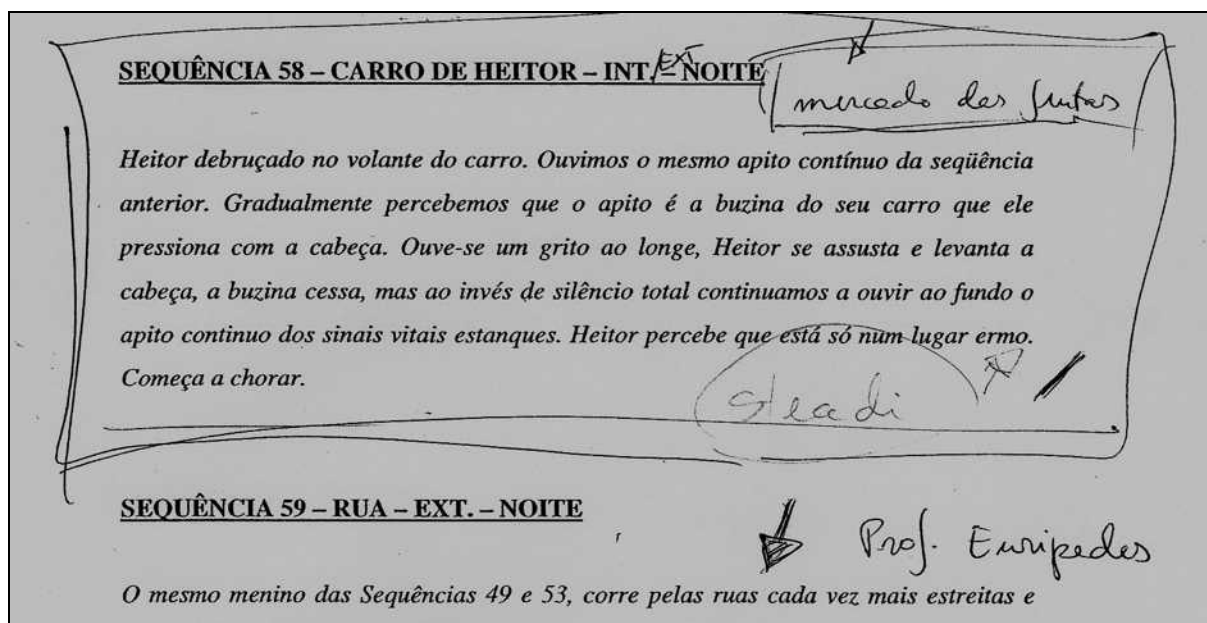 SEQUÊNCIA 58 – CARRO DE HEITOR – INT./EXT – NOITE
mercado das frutas
Heitor debruçado no volante do carro. Ouvimos o mesmo apito contínuo da seqüência
anterior. Gradualmente percebemos que o apito é a buzina do seu carro que ele
pressiona com a cabeça. Ouve-se um grito ao longe, Heitor se assusta e levanta a
cabeça, a buzina cessa, mas ao invés de silêncio total continuamos a ouvir ao fundo o
apito continuo dos sinais vitais estanques. Heitor percebe que está só num lugar ermo.
Começa a chorar.
Steadi
SEQUÊNCIA 59 – RUA – EXT. – NOITE
Prof. Euripedes
O mesmo menino das Sequências 49 e 53, corre pelas ruas cada vez mais estreitas e